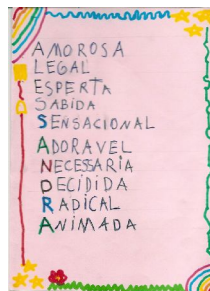 AMOROSA
LEGAL
ESPERTA
SABIDA
SENSACIONAL
ADORAVEL
NECESSARIA
DECIDIDA
RADICAL
ANIMADA